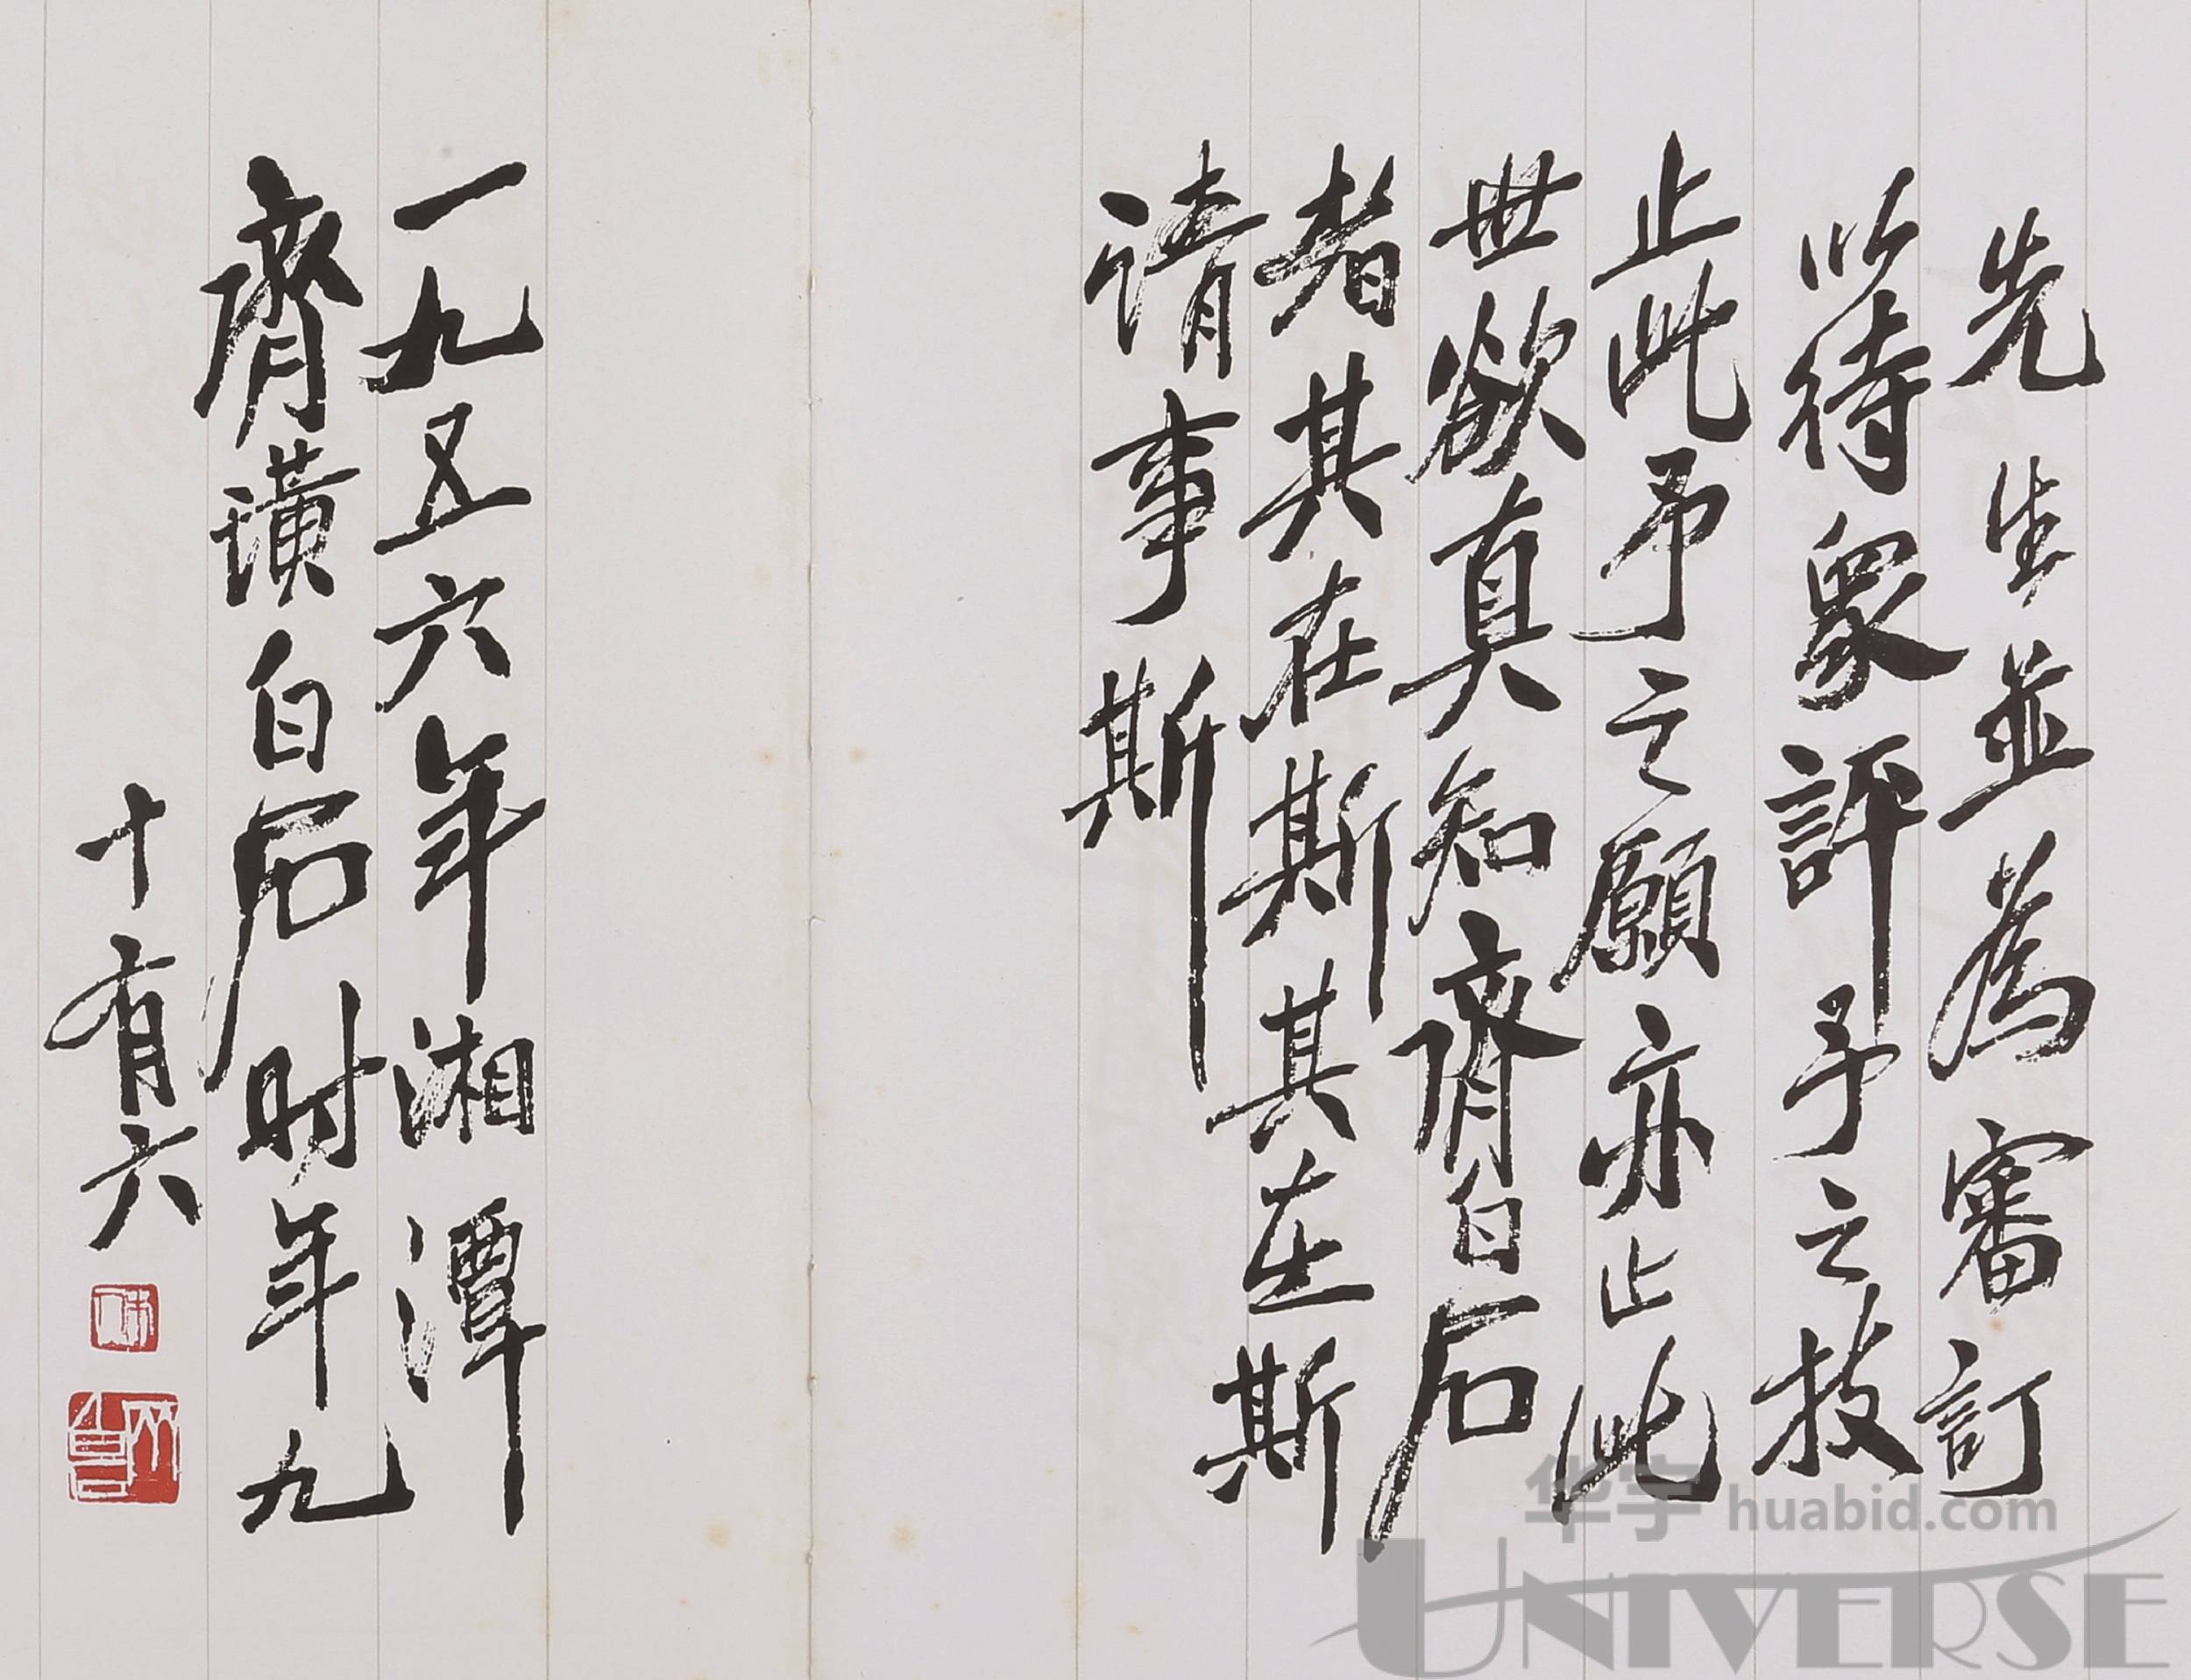 先生並為審訂
以待眾評予之技
止此予之願亦止此
世欲真知齊白石
者其在斯其在斯
請事斯
一九五六年湘潭
齊璜白石时年九
十有六
华宇 huabid.com
UNIVERSE